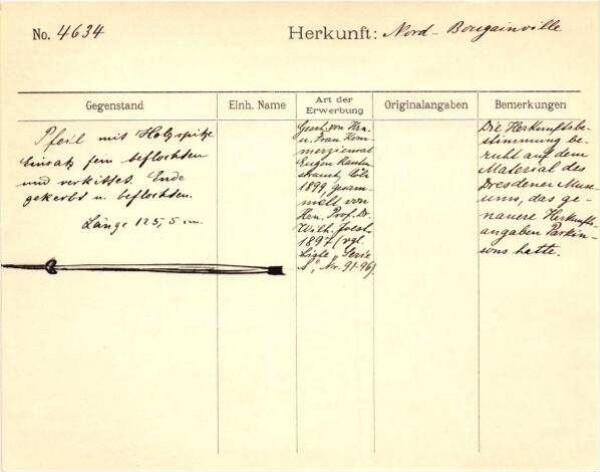 No. 4634
Herkunft: Nord-Bougainville
Gegenstand
Einh. Name
Art der
Erwerbung
Originalangaben
Bemerkungen
Pfeil mit Holzspitze
Einsatz fein beflochten
und verkittet. Ende
gekerbt u. beflochten.
Länge 125,5 cm.
Gesch. von Hrn.
u. Frau Kom-
merzienrat
Eugen Rauten-
strauch, Cöln
1899, gesam-
melt von
Hrn. Prof. Dr.
Wilh. Joest
1897 (vgl.
Liste, Serie
Nr. 91-96).
Die Herkunftsbe-
stimmung be-
ruht auf dem
Material des
Dresdener Muse-
ums, das ge-
nauere Herkunfts-
angaben Parkin-
sons hatte.